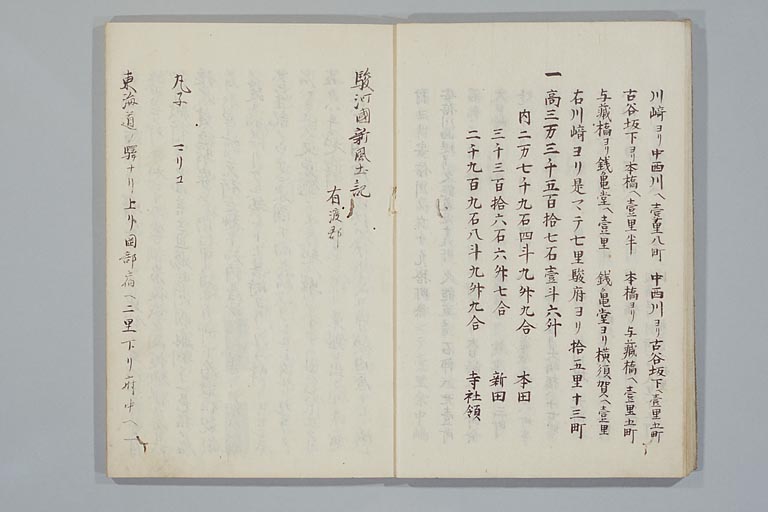 川﨑ヨリ中西川ヘ壹里八町 中西川ヨリ古谷坂下ヘ壹里五町
古谷坂下ヨリ本橋ヘ壹里半 本橋ヨリ与藏橋ヘ壹里五町
与藏橋ヨリ銭亀堂ヘ壹里 銭亀堂ヨリ横須賀ヘ壹里
右川﨑ヨリ是マテ七里駿府ヨリ拾五里十三町
一高三万三千五百拾七石壹斗六升
内二万七千九石四斗九升九合 本田
三千三百拾六石六升七合 新田
二千九百九石八斗九升九合 寺社領
駿河國新風土記
有渡郡
丸子 マリコ
東海道ノ驛ナリ上リ岡部宿ヘ二里下リ府中ヘ一